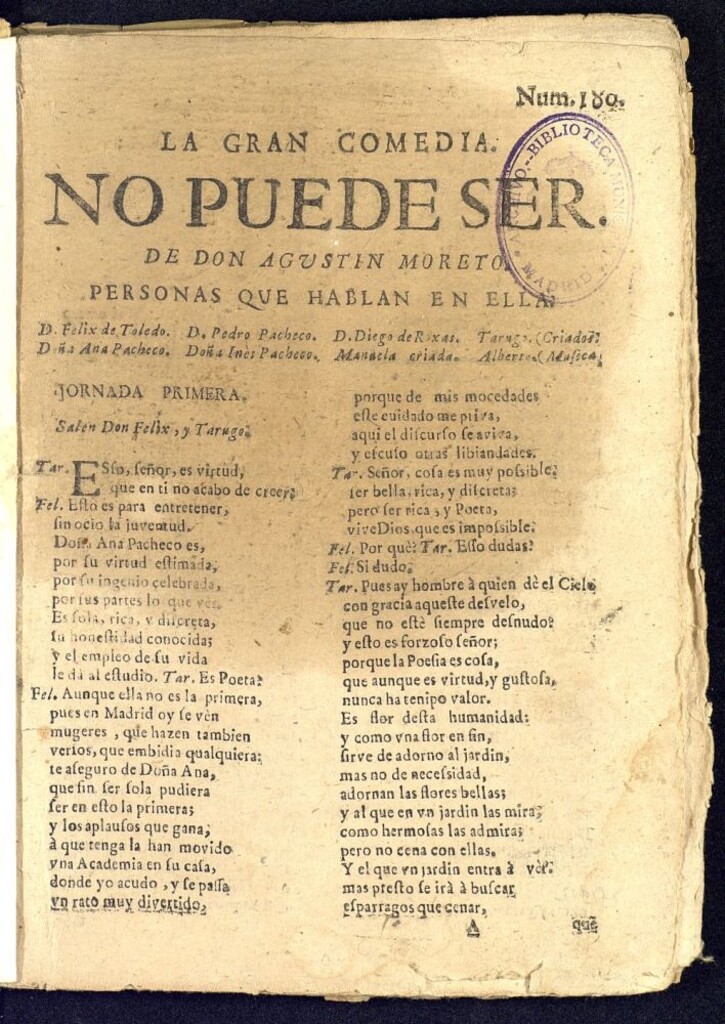 Num. 180.
LA GRAN COMEDIA.
NO PUEDE SER.
DE DON AGVSTIN MORETO.
PERSONAS QUE HABLAN EN ELLA.
D. Felix de Toledo. D. Pedro Pacheco. D. Diego de Roxas. Tarugo. (Criado.
Doña Ana Pacheco. Doña Inès Pacheco. Manuela criada. Alberto. (Musica.
JORNADA PRIMERA.
Salen Don Felix, y Tarugo.
Tar. ESſo, ſeñor, es virtud,
que en ti no acabo de creer.
Fel. Eſto es para entretener,
ſin ocio la juventud.
Doña Ana Pacheco es,
por ſu virtud eſtimada,
por ſu ingenio celebrada,
por ſus partes lo que vès.
Es ſola, rica, y diſcreta,
ſu honeſtidad conocida;
y el empleo de ſu vida
le dà al eſtudio. Tar. Es Poeta?
Fel. Aunque ella no es la primera,
pues en Madrid oy ſe vèn
mugeres, que hazen tambien
verſos, que embidia qualquiera;
te aſeguro de Doña Ana,
que ſin ſer ſola pudiera
ſer en eſto la primera;
y los aplauſos que gana,
à que tenga la han movido
vna Academia en ſu caſa,
donde yo acudo, y ſe paſſa
vn rato muy divertido,
porque de mis mocedades
eſte cuidado me priva,
aqui el diſcurſo ſe aviva,
y eſcuſo otras libiandades.
Tar. Señor, coſa es muy poſsible,
ſer bella, rica, y diſcreta;
pero ſer rica, y Poeta,
vive Dios, que es impoſsible.
Fel. Por què? Tar. Eſſo dudas?
Fel. Si dudo.
Tar. Pues ay hombre à quien dè el Cielo
con gracia aqueſte deſvelo,
que no eſtè ſiempre deſnudo?
y eſto es forzoſo ſeñor;
porque la Poeſia es coſa,
que aunque es virtud, y guſtoſa,
nunca ha tenipo valor.
Es flor deſta humanidad:
y como vna flor en fin,
ſirve de adorno al jardin,
mas no de neceſsidad,
adornan las flores bellas;
y al que en vn jardin las mira,
como hermoſas las admira;
pero no cena con ellas.
Y el que vn jardin entra à vèr.
mas preſto ſe irà à buſcar
eſparragos que cenar,
A
què
ARCHIVO. BIBLIOTECA MUNI
MADRID